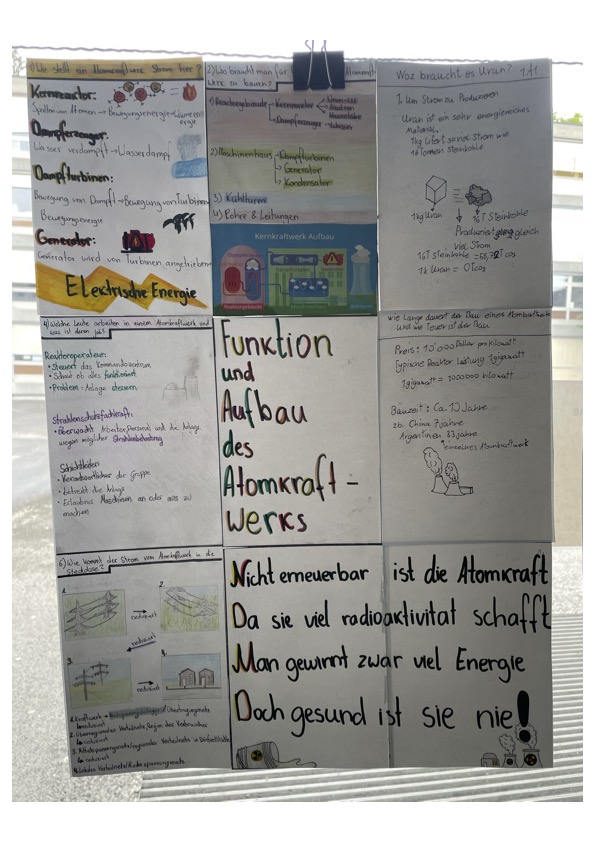 1) Wie stellt ein Atomkraftwerk Strom her?
Kernreaktor:
Spalten von Atomen → Bewegungsenergie → Wärmeenergie
Dampferzeuger:
Wasser verdampft → Wasserdampf
Dampfturbinen:
Bewegung von Dampf → Bewegung von Turbinen
Bewegungsenergie
Generator:
Generator wird von Turbinen angetrieben
Elektrische Energie
2) Was braucht man für Atomkraft-
Werk zu bauen?
1) Reaktorgebäude → Kernreaktor
→ Dampferzeuger → Wasser
2) Maschinenhaus → Dampfturbinen
→ Generator
→ Kondensator
3) Kühltürme
4) Rohre & Leitungen
Kernkraftwerk Aufbau
Woz braucht es Uran?
1. Um Strom zu Produzieren
Uran ist ein sehr energiereiches
Material.
1kg liefert so viel Strom wie
16 Tonnen Steinkohle
1kg Uran
=
16T Steinkohle
Produziert gleich
viel Strom
16T Steinkohle =
1k Uran = 0T CO2
4) Welche Leute arbeiten in einem Atomkraftwerk und
was ist deren job?
Reaktoroperateur:
• Steuert das Kommandozentrum
• Schaut ob alles funktioniert
• Problem = Anlage steuern
Strahlenschutzfachkraft:
• Überwacht Arbeiter, Personal und die Anlage
wegen möglicher Strahlenbelastung
Schichtleiter:
• Verantwortlicher der Gruppe
• betreibt die Anlage
• Erlaubnis Maschinen an oder aus zu
machen
Funktion
und
Aufbau
des
Atomkraft-
werks
wie Lange dauert der Bau eines Atomkraftwerks
und wie Teuer ist der Bau
Preis: 10'000 Dollar pro kilowatt
Typische Reaktor Leistung 1gigawatt
1gigawatt = 1000000 kilowatt
Bauzeit: Ca. 10 Jahre
zb. China 7 jahre
Argentinien 33 jahre
einzelnes Atomkraftwerk
6) Wie kommt der Strom vom Atomkraftwerk in die
Steckdose?
1.
→
reduziert
2.
reduziert
3.
→
reduziert
4.
1. Kraftwerk → Übertragungsnetz
↳ reduziert
2. Überregionales Verteilnetz/Region des Verbraucher
↳ reduziert
3. Mittelspannungsnetz/regionales Verteilnetz in Dörfer/Städte
↳ reduziert
4. Lokales Verteilnetz/Niederspannungsnetz
Nicht erneuerbar ist die Atomkraft
Da sie viel radioaktivitat schafft
Man gewinnt zwar viel Energie
Doch gesund ist sie nie!